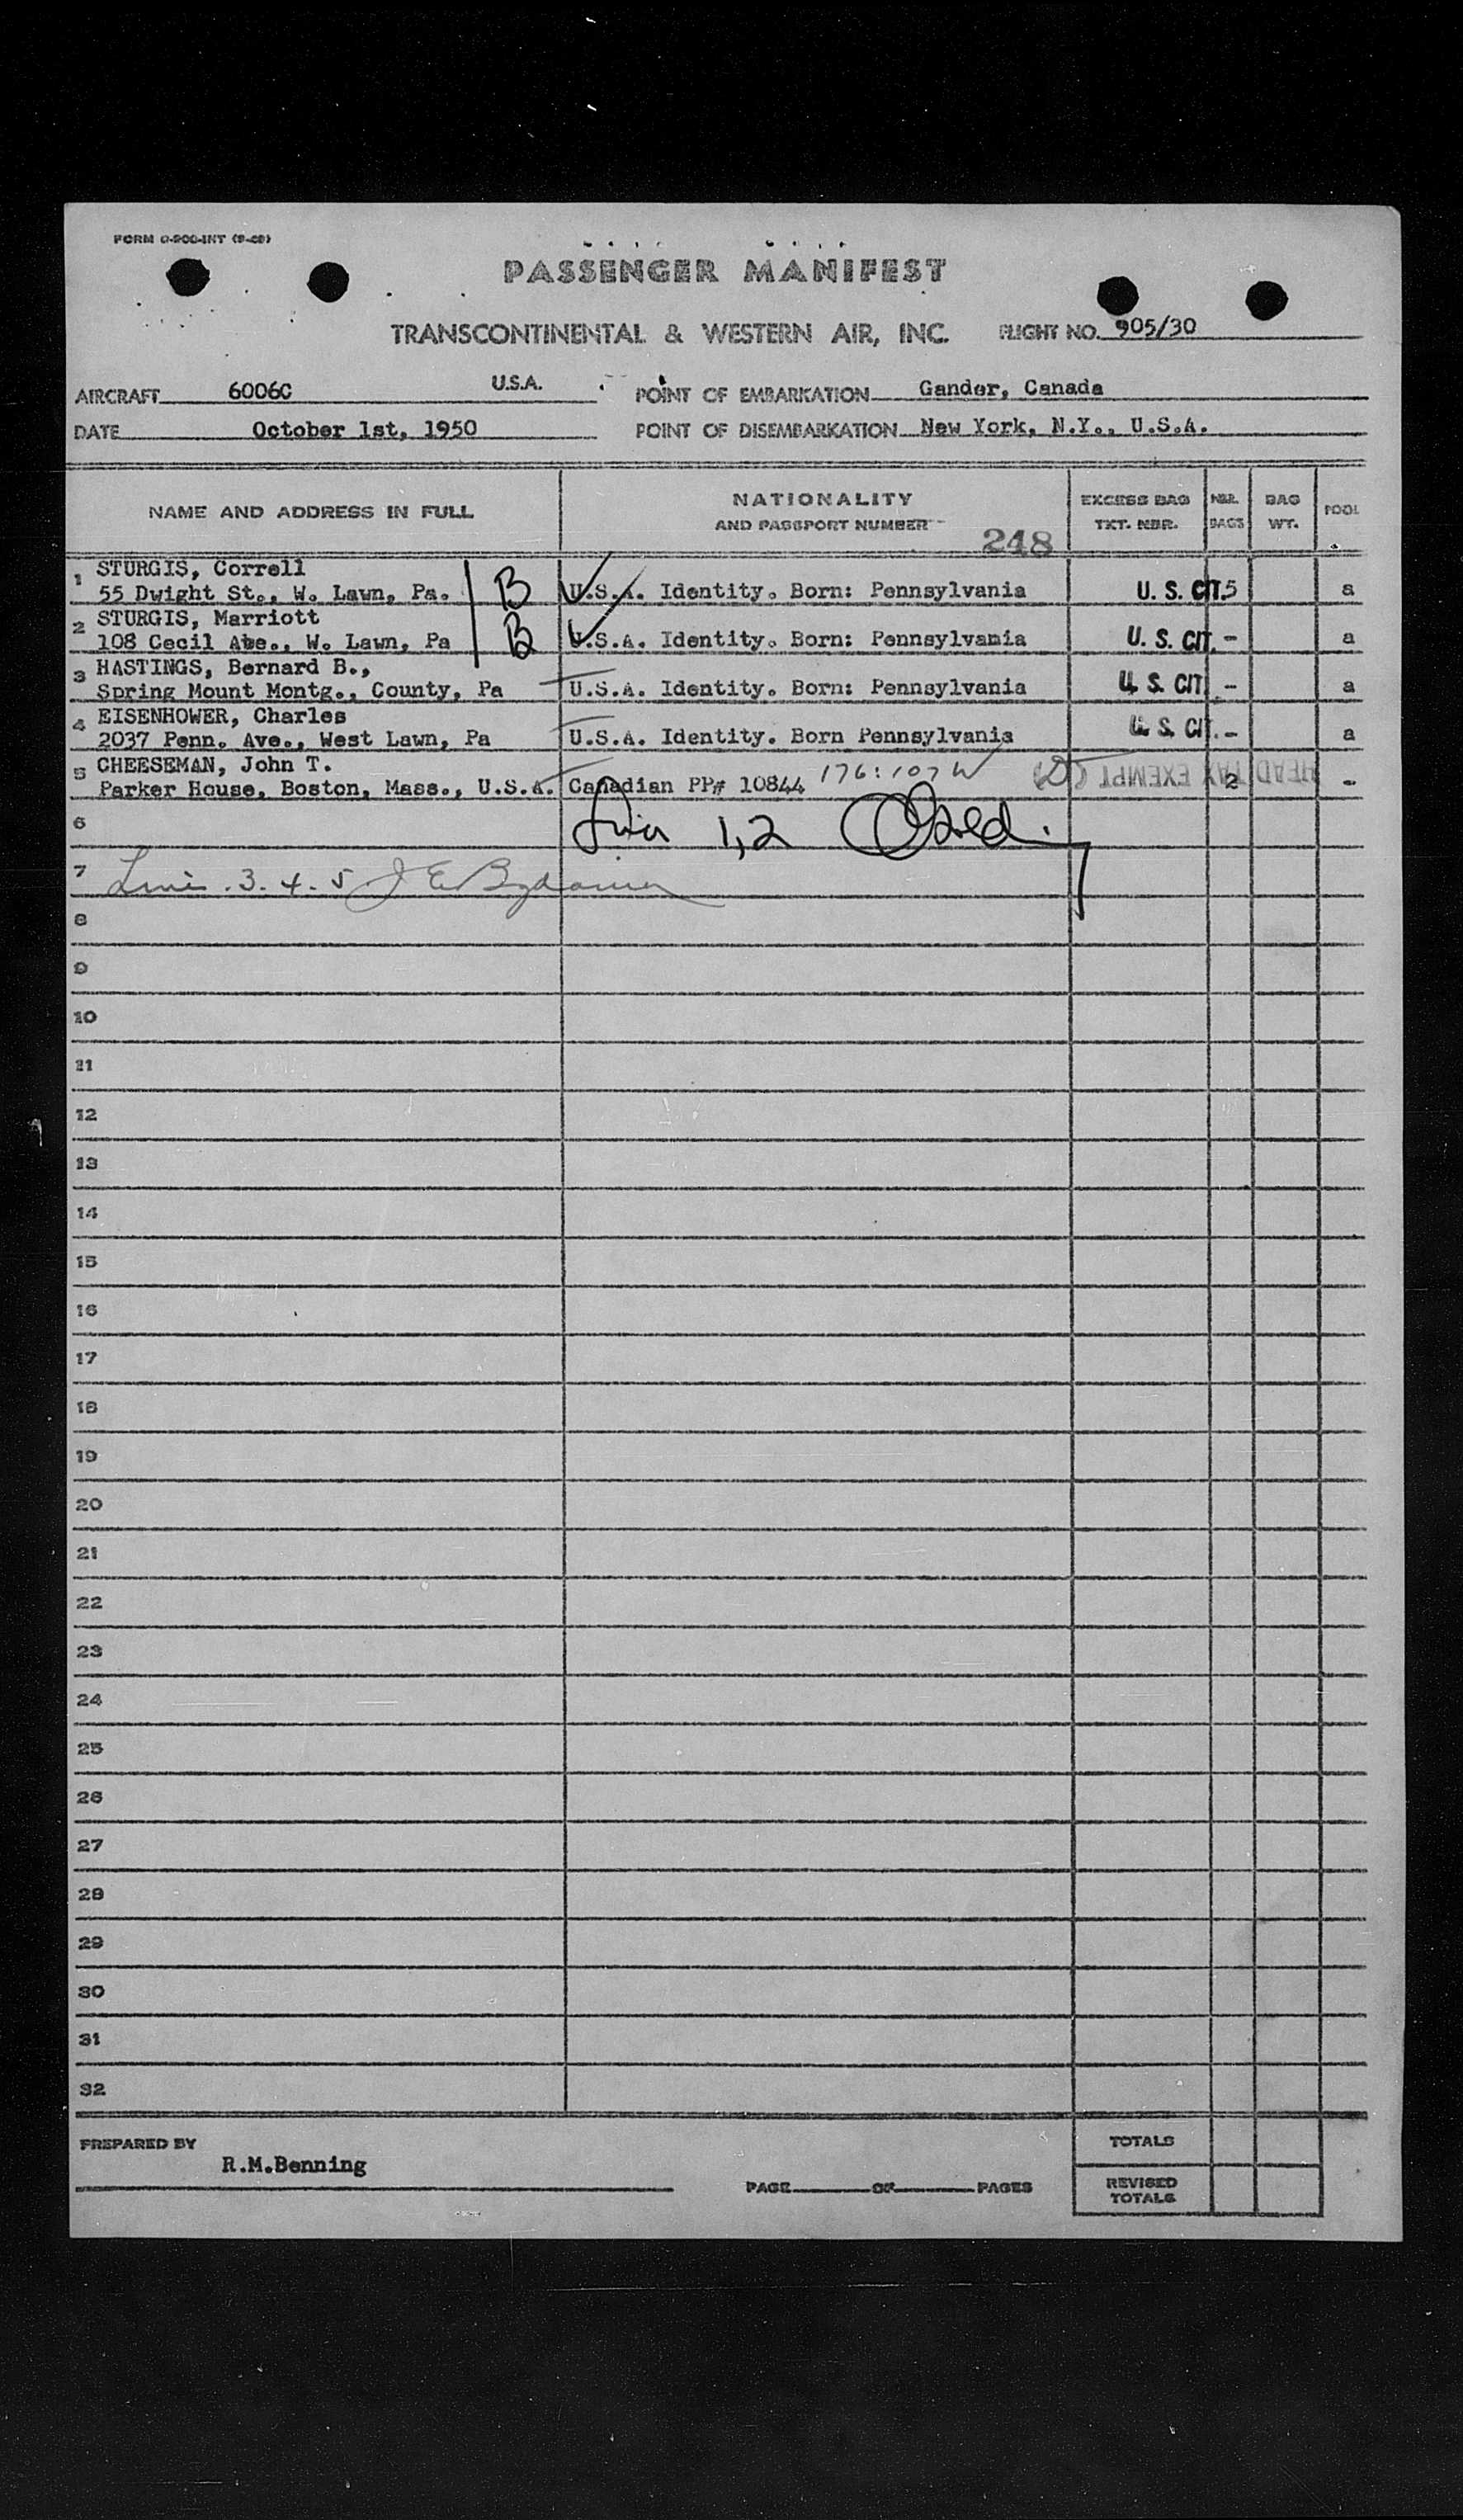 FORM O-200-INT (9-49)
PASSENGER MANIFEST
TRANSCONTINENTAL & WESTERN AIR, INC. FLIGHT NO. 905/30
AIRCRAFT 6006C U.S.A. POINT OF EMBARKATION Gander, Canada
DATE October 1st, 1950 POINT OF DISEMBARKATION New York, N.Y., U.S.A.
NAME AND ADDRESS IN FULL NATIONALITY AND PASSPORT NUMBER EXCESS BAG TKT. NBR. NBR. BAGS BAG WT. POOL
248
1 STURGIS, Correll
55 Dwight St., W. Lawn, Pa. B U.S.A. Identity. Born: Pennsylvania U. S. CIT. 5 a
2 STURGIS, Marriott
108 Cecil Ave., W. Lawn, Pa B U.S.A. Identity. Born: Pennsylvania U. S. CIT. - a
3 HASTINGS, Bernard B.,
Spring Mount Montg., County, Pa U.S.A. Identity. Born: Pennsylvania U. S. CIT. - a
4 EISENHOWER, Charles
2037 Penn. Ave., West Lawn, Pa U.S.A. Identity. Born Pennsylvania U. S. CIT. - a
5 CHEESEMAN, John T.
Parker House, Boston, Mass., U.S.A. Canadian PP# 10844 176:107W HEAD TAX EXEMPT 2 -
6 1,2
7 Line 3. 4. 5 J E
8
9
10
11
12
13
14
15
16
17
18
19
20
21
22
23
24
25
26
27
28
29
30
31
32
PREPARED BY
R.M.Benning
PAGE OF PAGES
TOTALS
REVISED TOTALS